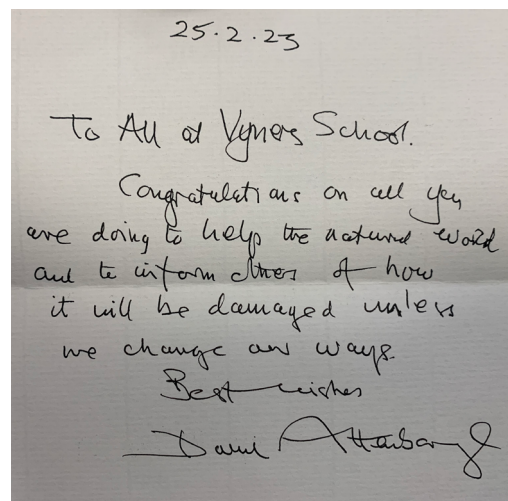 25.2.23
To All at Vyners School.
Congratulations on all you
are doing to help the natural world
and to inform others of how
it will be damaged unless
we change our ways.
Best wishes
David Attenborough